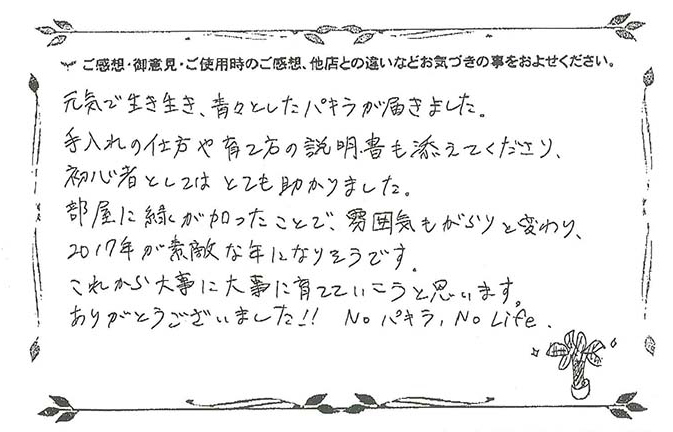 ご感想・御意見・ご使用時のご感想、他店との違いなどお気づきの事をおよせください。
元気で生き生き、青々としたパキラが届きました。
手入れの仕方や育て方の説明書も添えてくださり、
初心者としてはとても助かりました。
部屋に緑が加ったことで、雰囲気もがらりと変わり、
2017年が素敵な年になりそうです。
これから大事に大事に育てていこうと思います。
ありがとうございました!! No パキラ, No Life.